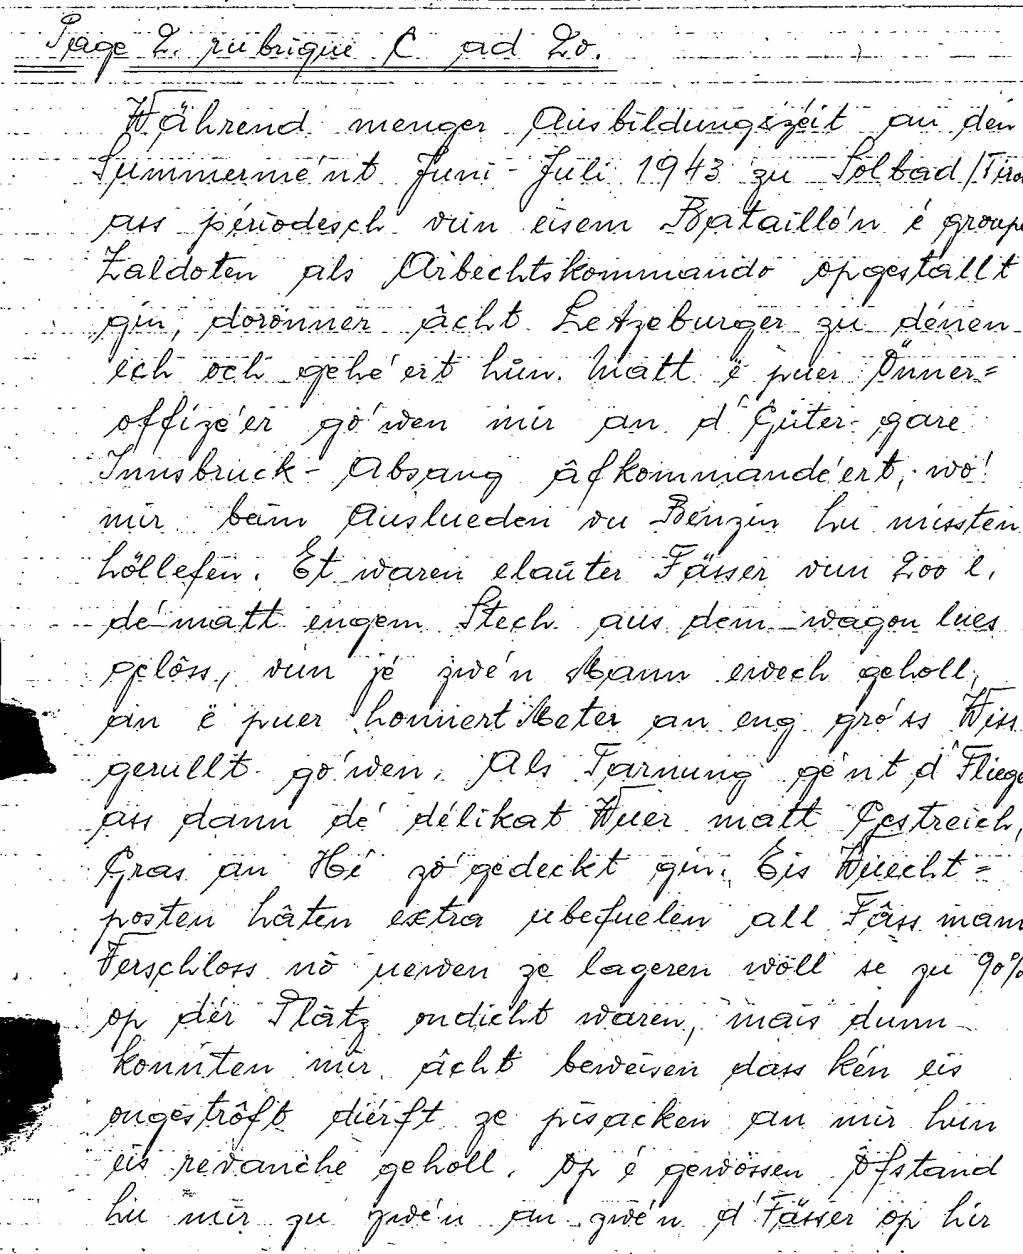 Page 2. rubrique C ad 20.
Während menger Ausbildungszéit an den
Summerme'nt Juni - Juli 1943 zu Solbad/Tirol
ass périodesch vun eisem Bataillo'n é groupe
Zaldoten als Arbechtskommando opgestallt
gin, doronner âcht Letzeburger zu dénen
ech och gehe'ert hun. Matt ë puer Ónner=
offize'er go'wen mir an d'Güter-gare
Innsbruck - Absang âfkommande'ert, wo'
mir beim Auslueden vu Benzin hu missten
höllefen. Et waren elauter Fässer vun 200 l.
de' matt engem Stech aus dem wagon lues
gelôss, vun jé zwe'n Mann ewech geholl,
an ë puer honnert Meter an eng gro'ss Wiss
gerullt go'wen. Als Tarnung ge'nt d'Flieger
ass dann de' délikat Wuer matt Gestreich,
Gras an Hé zo'gedeckt gin. Eis Wuecht=
posten hâten extra ubefuelen all Fâss mam
Ferschloss nô uewen ze lageren wöll se zu 90%
op dér Plâtz ondicht waren, mais dunn
konnten mir âcht beweisen dass kén eis
ongestrôft diérft ze pisacken an mir hun
eis revanche geholl. Op é gewössen Ofstand
hu mir zu zwe'n an zwe'n d'Fässer op hir